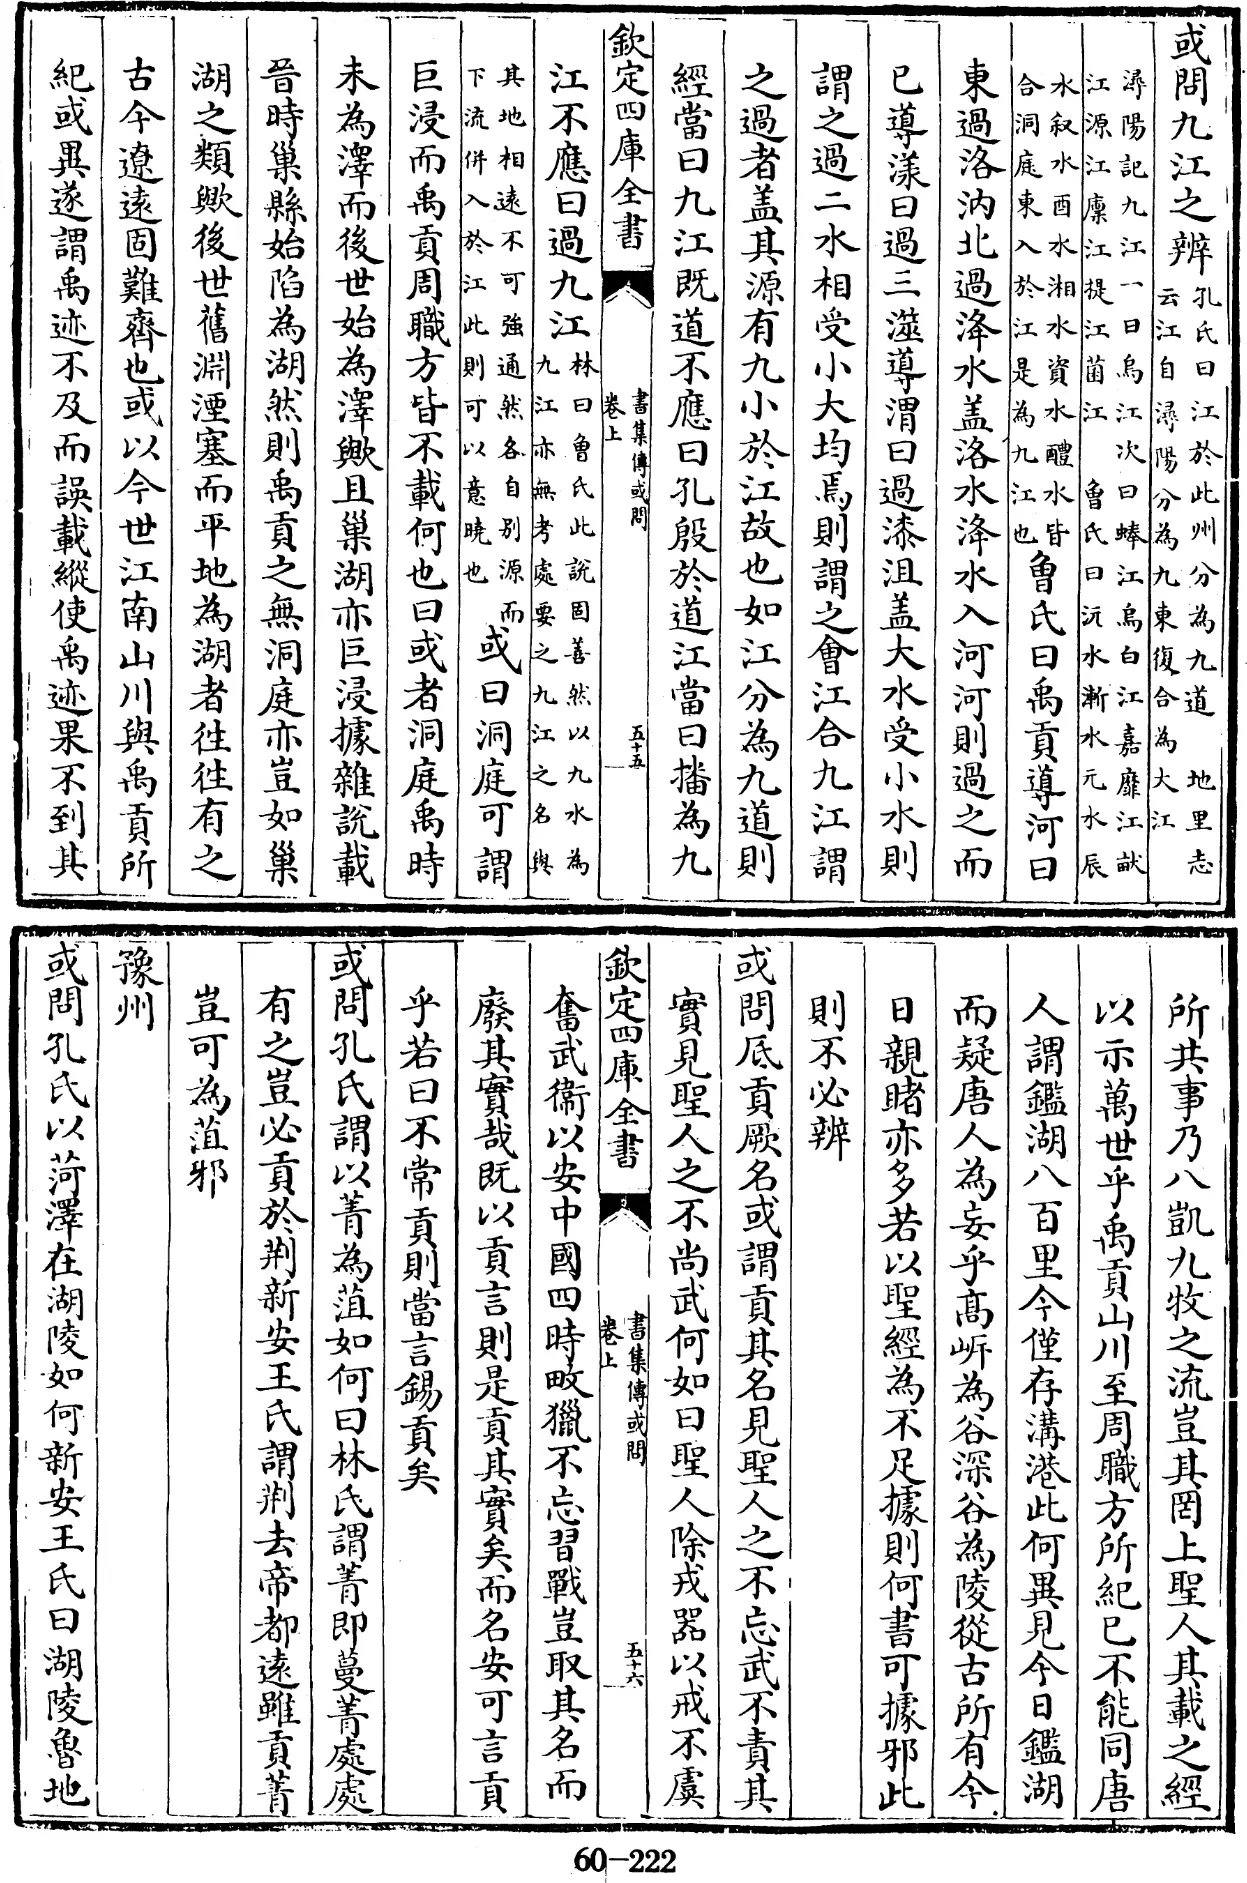 或問九江之辨孔氏曰江於此州分為九道 地里志
云江自潯陽分為九東復合為大江
潯陽記九江一曰烏江次曰蜯江烏白江嘉靡江畎
江源江廩江提江箘江 魯氏曰沅水漸水元水辰
水叙水酉水湘水資水醴水皆
合洞庭東入於江是為九江也魯氏曰禹貢導河曰
東過洛汭北過洚水盖洛水洚水入河河則過之而
已導漾曰過三澨導渭曰過漆沮盖大水受小水則
謂之過二水相受小大均焉則謂之會江合九江謂
之過者盖其源有九小於江故也如江分為九道則
經當曰九江既道不應曰孔殷於道江當曰播為九
欽定四庫全書
書集傳或問
卷上
五十五
江不應曰過九江林曰魯氏此說固善然以九水為
九江亦無考處要之九江之名與
其地相遠不可強通然各自別源而
下流併入於江此則可以意曉也或曰洞庭可謂
巨浸而禹貢周職方皆不載何也曰或者洞庭禹時
未為澤而後世始為澤歟且巢湖亦巨浸據雜說載
晉時巢縣始陷為湖然則禹貢之無洞庭亦豈如巢
湖之類歟後世舊淵湮塞而平地為湖者往往有之
古今遼遠固難齊也或以今世江南山川與禹貢所
紀或異遂謂禹迹不及而誤載縱使禹迹果不到其
所共事乃八凱九牧之流豈其罔上聖人其載之經
以示萬世乎禹貢山川至周職方所紀已不能同唐
人謂鑑湖八百里今僅存溝港此何異見今日鑑湖
而疑唐人為妄乎髙岍為谷深谷為陵從古所有今
日親睹亦多若以聖經為不足據則何書可據邪此
則不必辨
或問厎貢厥名或謂貢其名見聖人之不忘武不責其
實見聖人之不尚武何如曰聖人除戎器以戒不虞
欽定四庫全書
書集傳或問
卷上
五十六
奮武衞以安中國四時畋獵不忘習戰豈取其名而
廢其實哉既以貢言則是貢其實矣而名安可言貢
乎若曰不常貢則當言錫貢矣
或問孔氏謂以菁為菹如何曰林氏謂菁即蔓菁處處
有之豈必貢於荆新安王氏謂荆去帝都遠雖貢菁
豈可為菹邪
豫州
或問孔氏以菏澤在湖陵如何新安王氏曰湖陵魯地
60-222